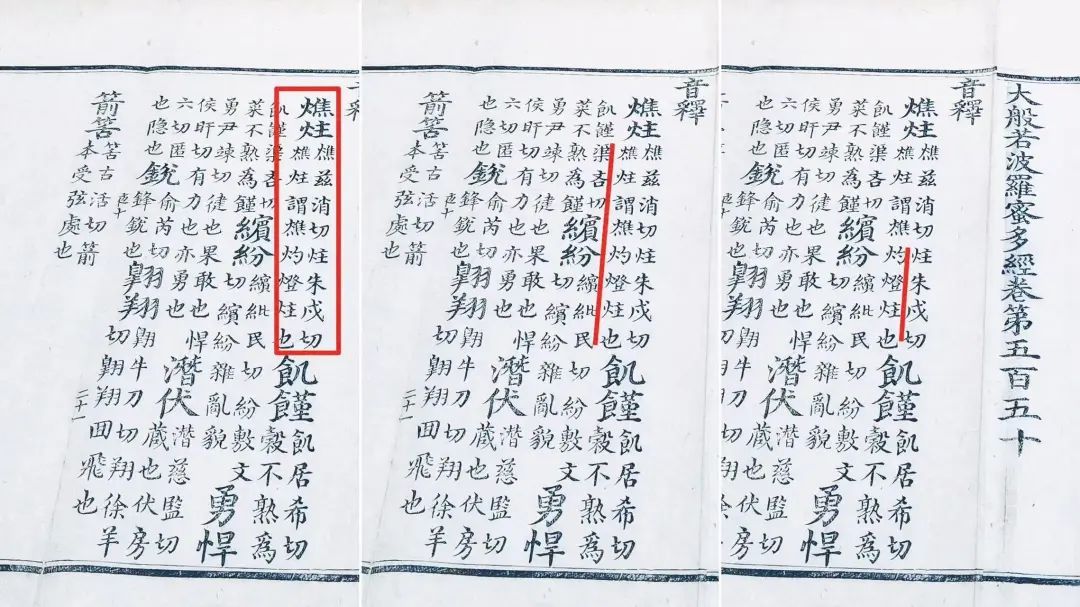 燋炷樵兹消切炷朱戍切樵炷謂樵灼燈炷也飢饉飢居希切穀不熟爲
飢饉渠吝切菜不熟為饉繽紛繽紕民切紛敷文切繽紛雜亂貌勇悍
勇尹竦切徒也果敢也悍侯旰切有力也亦勇也潛伏潛慈監切藏也伏房
六切匿也隐也銳俞芮切鋒銳也翺翔翺牛刀切翔徐羊切翺翔回飛也
箭筈筈古活切箭本受弦處也
二十一
音釋
燋炷樵兹消切炷朱戍切樵炷謂樵灼燈炷也飢饉飢居希切穀不熟爲
飢饉渠吝切菜不熟為饉繽紛繽紕民切紛敷文切繽紛雜亂貌勇悍
勇尹竦切徒也果敢也悍侯旰切有力也亦勇也潛伏潛慈監切藏也伏房
六切匿也隐也銳俞芮切鋒銳也翺翔翺牛刀切翔徐羊切翺翔回飛也
箭筈筈古活切箭本受弦處也
二十一
大般若波羅蜜多經卷第五百五十
音釋
燋炷樵兹消切炷朱戍切樵炷謂樵灼燈炷也飢饉飢居希切穀不熟爲
飢饉渠吝切菜不熟為饉繽紛繽紕民切紛敷文切繽紛雜亂貌勇悍
勇尹竦切徒也果敢也悍侯旰切有力也亦勇也潛伏潛慈監切藏也伏房
六切匿也隐也銳俞芮切鋒銳也翺翔翺牛刀切翔徐羊切翺翔回飛也
箭筈筈古活切箭本受弦處也
二十一